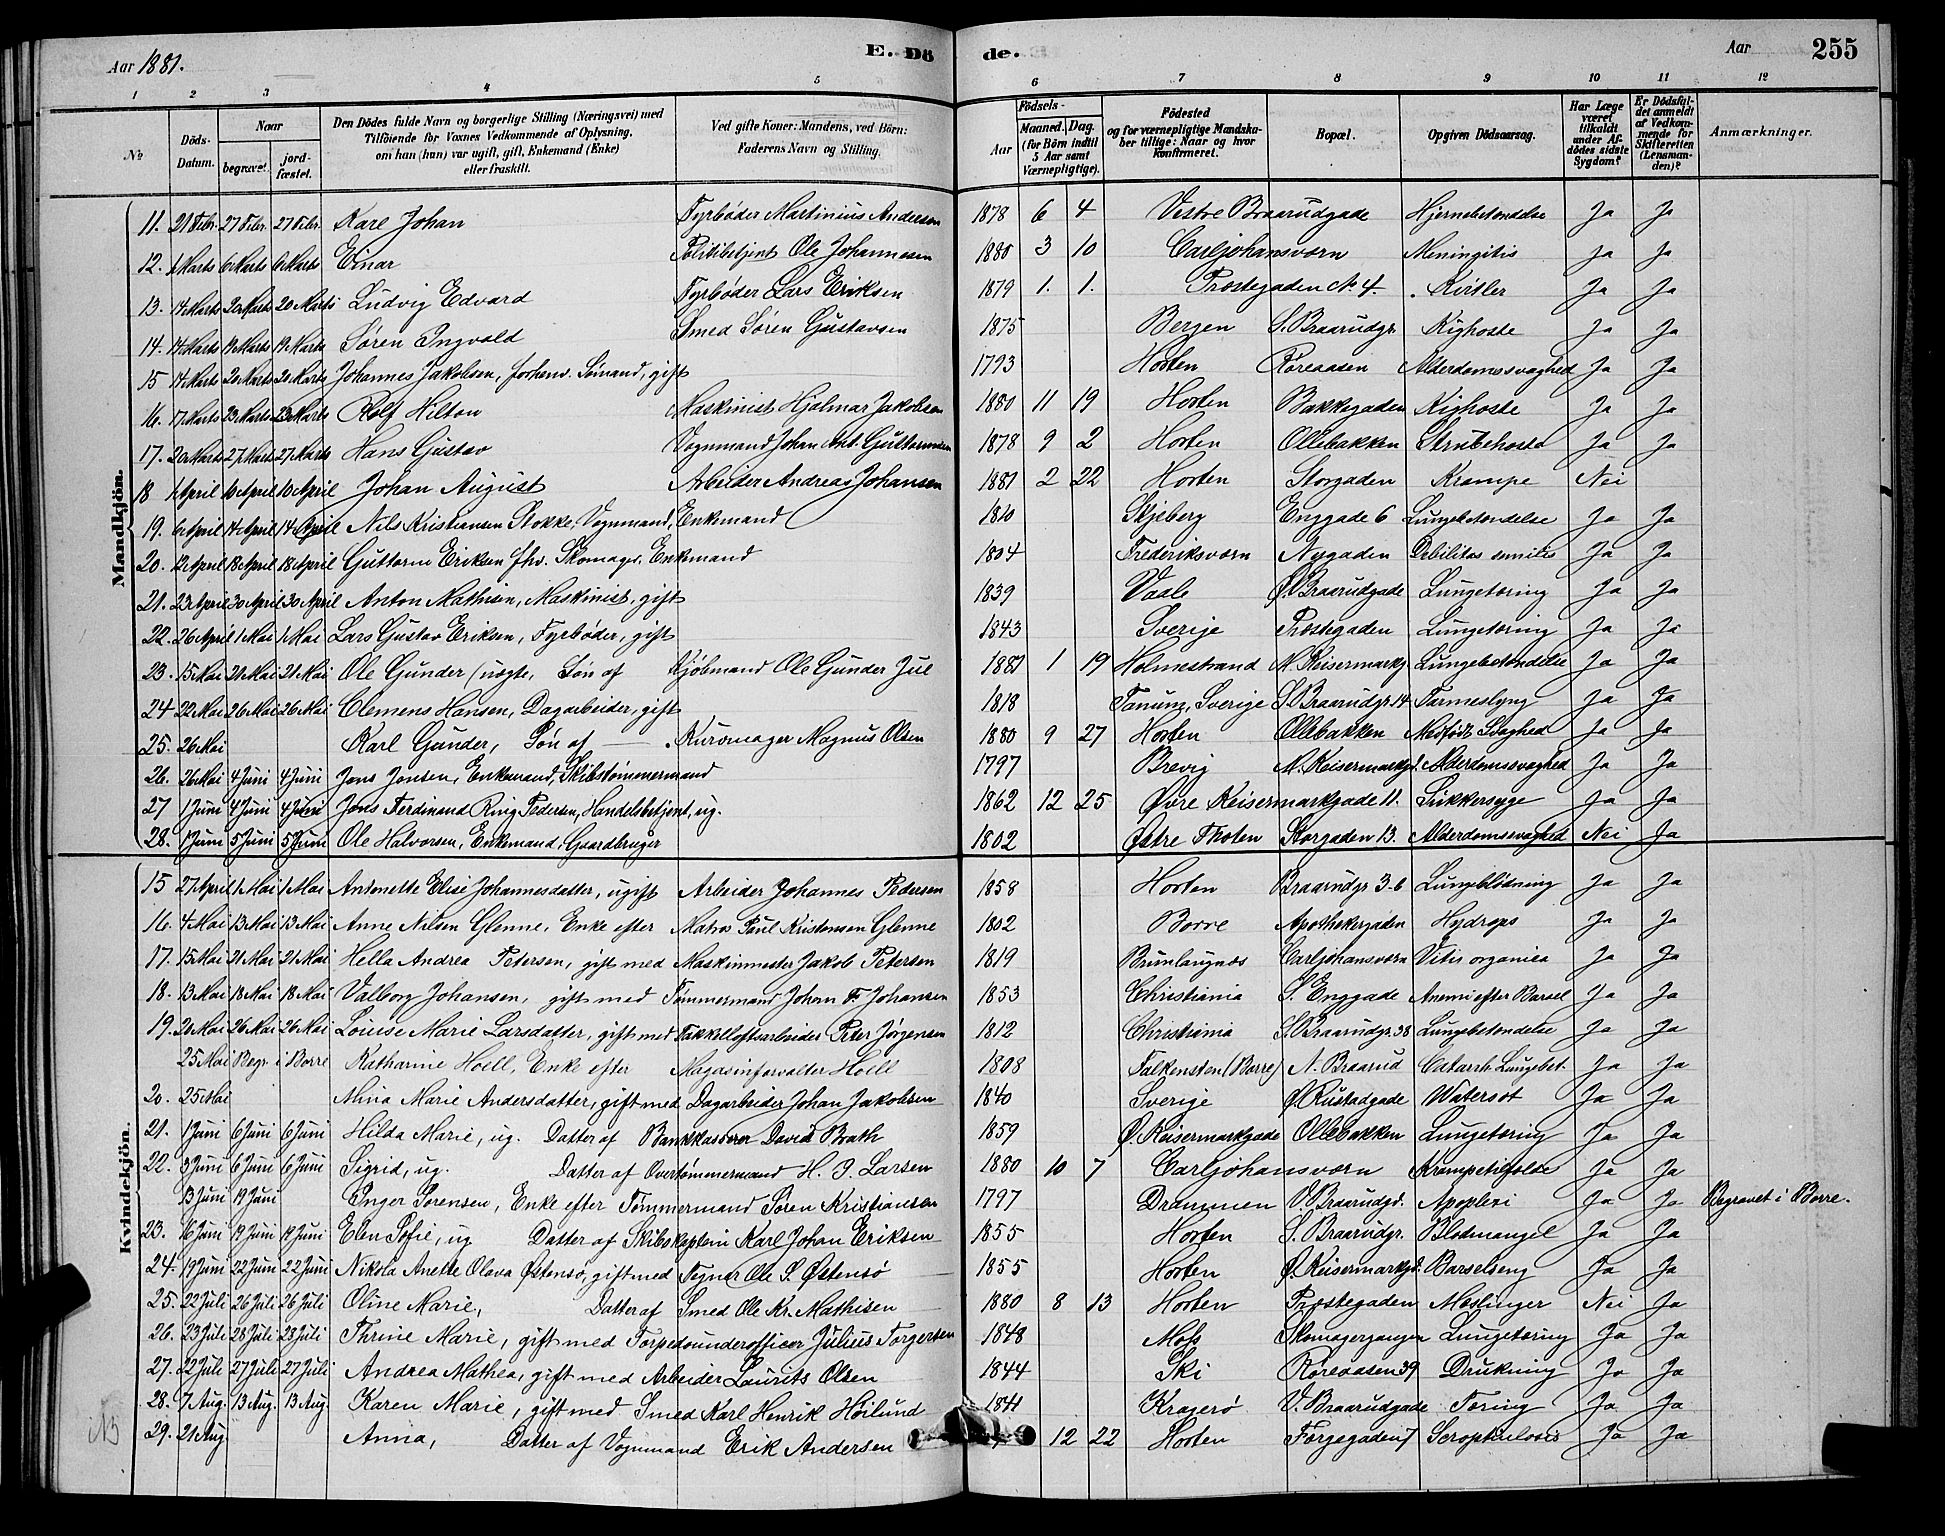 Aar 1881.
E. Dö
de.
Aar
255
1 2 3 4 5 6 7 8 9 10 11 12
No
Döds-Datum.
Naar begravet. jordfæstet.
Den Dödes fulde Navn og borgerlige Stilling (Næringsvei) med Tilföiende for Voxnes Vedkommende af Oplysning, om han (hun) var ugift, gift, Enkemand (Enke) eller fraskilt.
Ved gifte Koner: Mandens, ved Börn: Faderens Navn og Stilling.
Födsels- Aar Maaned. Dag. (for Börn indtil 5 Aar samt Værnepligtige).
Födested og for værnepligtige Mandskaber tillige: Naar og hvor konfirmeret.
Bopæl.
Opgiven Dödsaarsag.
Har Læge været tilkaldt under Afdödes sidste Sygdom?
Er Dödsfaldet anmeldt af Vedkommende for Skifteretten (Lensmanden)?
Anmærkninger.
Mandkjön.
11. 21 Febr. 27 Febr. 27 Febr. Karl Johan Fyrbøder Martinius Andersen 1878 6 4 Vestre Braarudgade Hjernebetændelse Ja Ja
12. 1 Marts 6 Marts 6 Marts Einar Politibetjent Ole Johannesen 1880 3 10 Carljohansværn Meningitis Ja Ja
13. 14 Marts 20 Marts 20 Marts Ludvig Edvard Fyrbøder Lars Eriksen 1879 1. 1. Præstegaden No. 4. Kirtler Ja Ja
14. 14 Marts 19 Marts 19 Marts Søren Ingvald Smed Søren Gustavsen 1875 Bergen S. Braarudgr. Kighoste Ja Ja
15 14 Marts 20 Marts 20 Marts Johannes Jakobsen, forhenv. Sømand, gift 1793 Horten Røreaasen Alderdomssvaghed Ja Ja
16. 17 Marts 23 Marts 23 Marts Rolf Hilton Maskinist Hjalmar Jakobsen 1880 11 19 Horten Bakkegaden Kighoste Ja Ja
17. 20 Marts 27 Marts 27 Marts Hans Gustav Vognmand Johan Ant. Guttormsen 1878 9 2 Horten Ollebakken Strubehoste Ja Ja
18 1 April 10 April 10 April Johan August Arbeider Andreas Johansen 1881 2 22 Horten Storgaden Krampe Nei
19. 6 April 14 April 14 April Nils Kristiansen Stokke, Vognmand, Enkemand 1810 Skjeberg Enggade 6 Lungebetændelse Ja Ja
20. 12 April 18 April 18 April Guttorm Eriksen fhv. Skomager. Enkemand 1804 Frederiksværn Nygaden Debilitas senilis Ja Ja
21. 23 April 30 April 30 April Anton Mathisen, Maskinist, gift 1839 Vaale Ø. Braarudgade Lungetæring Ja Ja
22. 26 April 1 Mai 1 Mai Lars Gustav Eriksen, Fyrbøder, gift 1843 Sverige Præstegaden Lungetæring Ja Ja
23. 15 Mai 21 Mai 21 Mai Ole Gunder (uægte, Søn af Kjøbmand Ole Gunder Jul 1881 1 19 Holmestrand N. Keisermarkg. Lungebetændelse Ja Ja
24 22 Mai 26 Mai 26 Mai Clemens Hansen, Dagarbeider, gift 1818 Tanum, Sverige S. Braarudgr. 14 Tarmeslyng Ja Ja
25. 26 Mai Karl Gunder, Søn af Kurvmager Magnus Olsen 1880 9 27 Horten Ollebakken Medfødt Svaghed Ja Ja
26. 26 Mai 4 Juni 4 Juni Jens Jensen, Enkemand, Skibstømmermand 1797 Brevig N. Keisermarkgd. Alderdomssvaghed Ja Ja
27 1 Juni 4 Juni 4 Juni Jens Ferdinand Ring Pedersen, Handelsbetjent, ug. 1862 12 25 Øvre Keisermarkgade 11. Sukkersyge Ja Ja
28. 1 Juni 5 Juni 5 Juni Ole Halvorsen, Enkemand, Gaardbruger 1802 Østre Thoten Storgaden 13. Alderdomssvaghed Nei Ja
Kvindekjön.
15 27 April 1 Mai 1 Mai Antonette Elise Johannesdatter, ugift Arbeider Johannes Pedersen 1858 Horten Braarudgr 3-6 Lungeblødning Ja Ja
16. 4 Mai 13 Mai 13 Mai Anne Nilsen Glenne, Enke efter Matros Paul Kristensen Glenne 1802 Borre Apothekergaden Hydrops Ja Ja
17. 15 Mai 21 Mai 21 Mai Hella Andrea Petersen, gift med Maskinmester Jakob Petersen 1819 Brunlaugnæs Carljohansværn Vitis organica Ja Ja
18. 13 Mai 18 Mai 18 Mai Valborg Johansen, gift med Tømmermand Johan F. Johansen 1853 Christiania S. Enggade Anemi efter Barsel Ja Ja
19. 20 Mai 26 Mai 26 Mai Louise Marie Larsdatter, gift med Takkelloftsarbeider Peter Jørgensen 1812 Christiania S. Braarudgr. 38 Lungebetændelse Ja Ja
25 Mai Begr. i Borre Katharine Hoell, Enke efter Magasinforvalter Hoell 1808 Falkensten (Borre) N. Braarud Catarrh. Lungebet. Ja Ja
20. 25 Mai Mina Marie Andersdatter, gift med Dagarbeider Johan Jakobsen 1840 Sverige Ø. Rustadgade Watersot Ja Ja
21. 1 Juni 6 Juni 6 Juni Hilda Marie, ug. Datter af Bankkasserer David Brath 1859 Ø. Keisermarkgade Ollebakken Lungetæring Ja Ja
22. 3 Juni 6 Juni 6 Juni Sigrid, ug. Datter af Overtømmermand H. P. Larsen 1880 10 7 Carljohansværn Krampetilfælde Ja Ja
13 Juni 19 Juni Inger Sørensen, Enke efter Tømmermand Søren Kristiansen 1797 Drammen V. Braarudgd. Apoplexi Ja Ja Begravet i Borre.
23. 16 Juni 19 Juni 19 Juni Elen Sofie, ug Datter af Skibskaptein Karl Johan Eriksen 1855 Horten S. Braarudgr. Blodmangel Ja Ja
24. 19 Juni 22 Juni 22 Juni Nikola Anette Olava Østensø, gift med Tegner Ole S. Østensø 1855 Horten Ø. Keisermarkgd. Barselseng Ja Ja
25. 22 Juli 26 Juli 26 Juli Oline Marie, Datter af Smed Ole Kr. Mathisen 1880 8 13 Horten Præstegaden Meslinger Nei Ja
26. 23 Juli 28 Juli 28 Juli Thrine Marie, gift med Torpedounderofficer Julius Torgersen 1848 Moss Skomagergangen Lungetæring Ja Ja
27. 22 Juli 27 Juli 27 Juli Andrea Mathea, gift med Arbeider Laurits Olsen 1844 Ski Røreaasen 39 Drukning Ja Ja
28. 7 Aug. 13 Aug. 13 Aug. Karen Marie, gift med Smed Karl Henrik Høilund 1841 Kragerø V. Braarudgade Tæring Ja Ja
NB 29. 21 Aug. Anna, Datter af Vognmand Erik Andersen 12 22 Horten Færgegaden 7 Scrophulosis Ja Ja